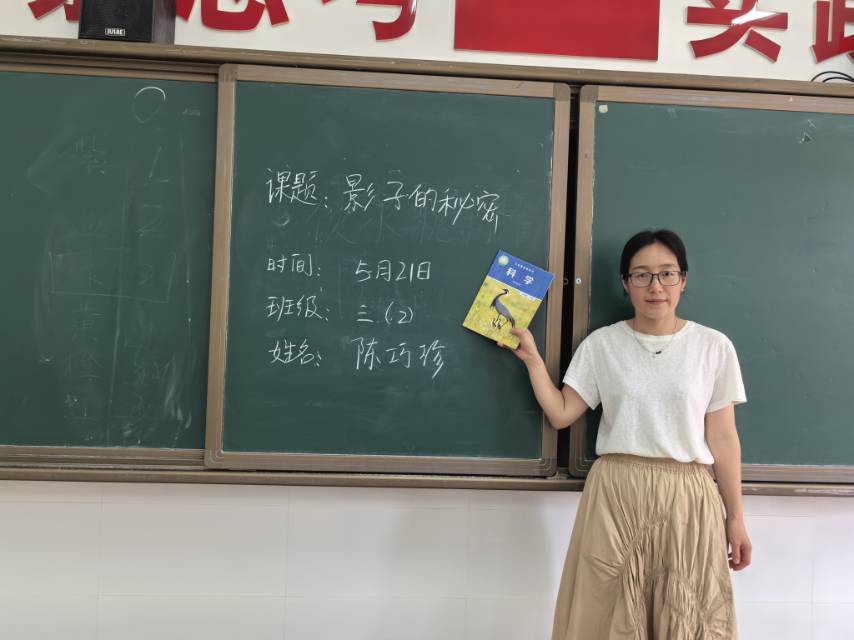 思考
实践
课题：影子的秘密
时间：5月21日
班级：三(2)
姓名：陈巧珍
科学